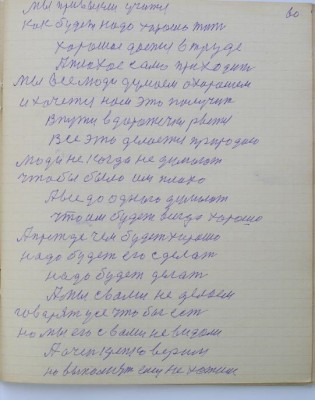 60
Мы привыкли учится
как будет надо хорошо жить
Хорошое достич в труде
А плохое само приходит
Мы все люди думаем о хорошем
и хочется нам это получит
В пути в дорожечки
Все это делается природаю
Люди не когда не думают
чтобы было им плохо
А все до одного думают
что им будет всегда хорошо
А прежде чем будет хорошо
надо будет его сделат
надо будет делат
А мы с вами не делаем
говарят усе что бы ест
но мы его с вами не видем
А очем
но не хотим